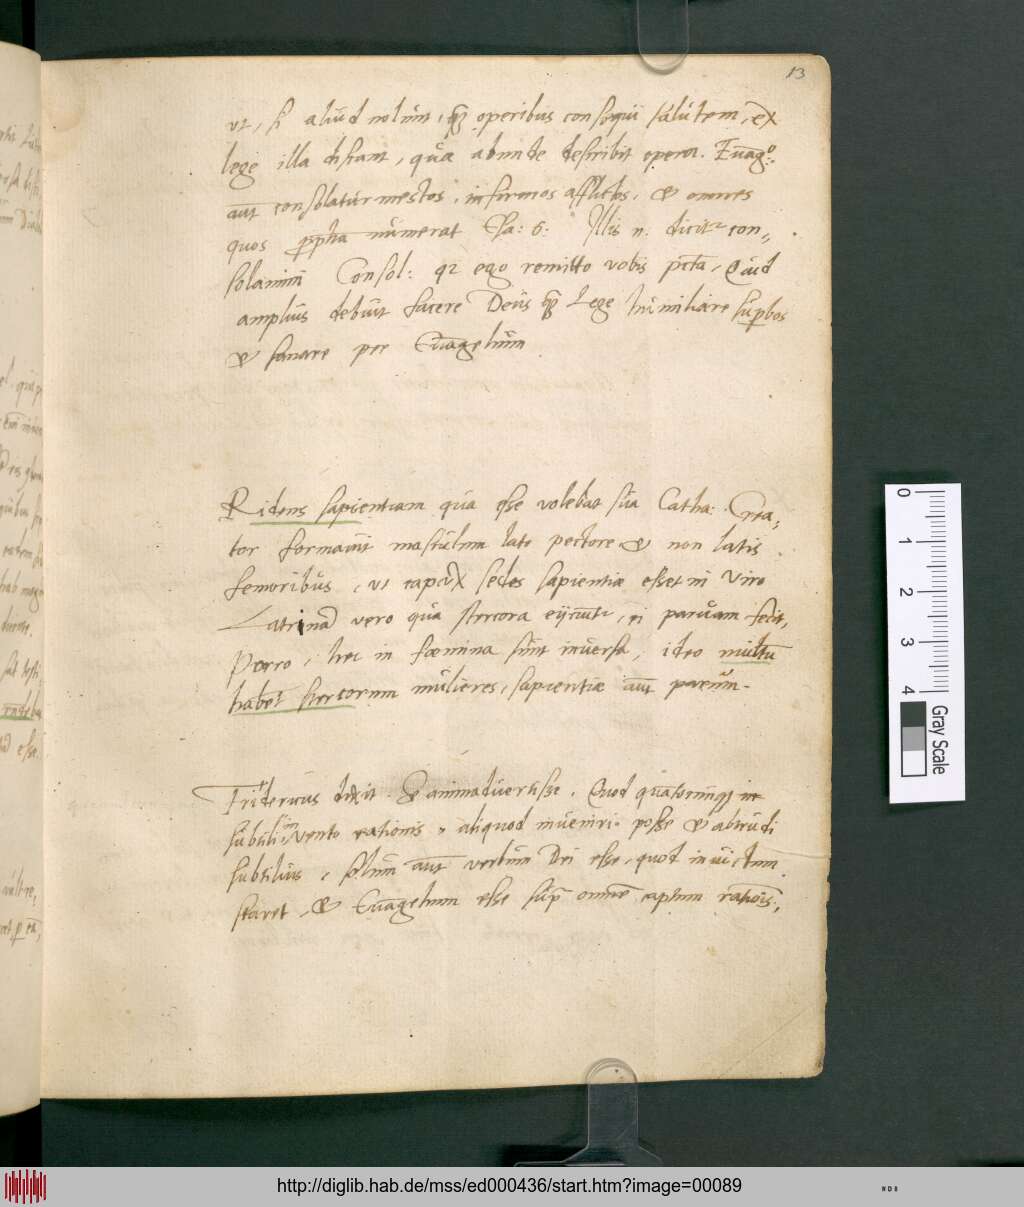 13
ut, si aliud nolunt, qz operibus consequi salutem, ex
lege illa discant, qua abunde describit opera. Euago:
aut consolatur mestos, infirmos afflictos, et omnes
quos ppha numerat Esa: 6: Illis n. dicitr con„
solamini Consol: qr ego remitto vobis pcta, Quid
amplius debuit facere Deus qz Lege humiliare supbos
et sanare per Euagelium
Ridens sapientiam qua esse volebat sua Catha: Crea,
tor formauit masculum lato pectore et non latis
femoribus, ut capax sedes sapientiae esset in viro
Latrina vero qua stercora eijciuntr, ei paruam fecit,
Porro, hec in foemina sunt inuersa, ideo multu
habet stercorum mulieres, sapientiae aut parum.
Fridericus dixit Se animaduertisse, Quod quasocunqz in
subtili inuento rationis, aliquod inueniri posse et abtrudi
subtilius, solum aut verbum Dei esse, quod inuictum
staret, et Euagelium esse sup omne captum ratiois,
0 1 2 3 4 Gray Scale
http://diglib.hab.de/mss/ed000436/start.htm?image=00089